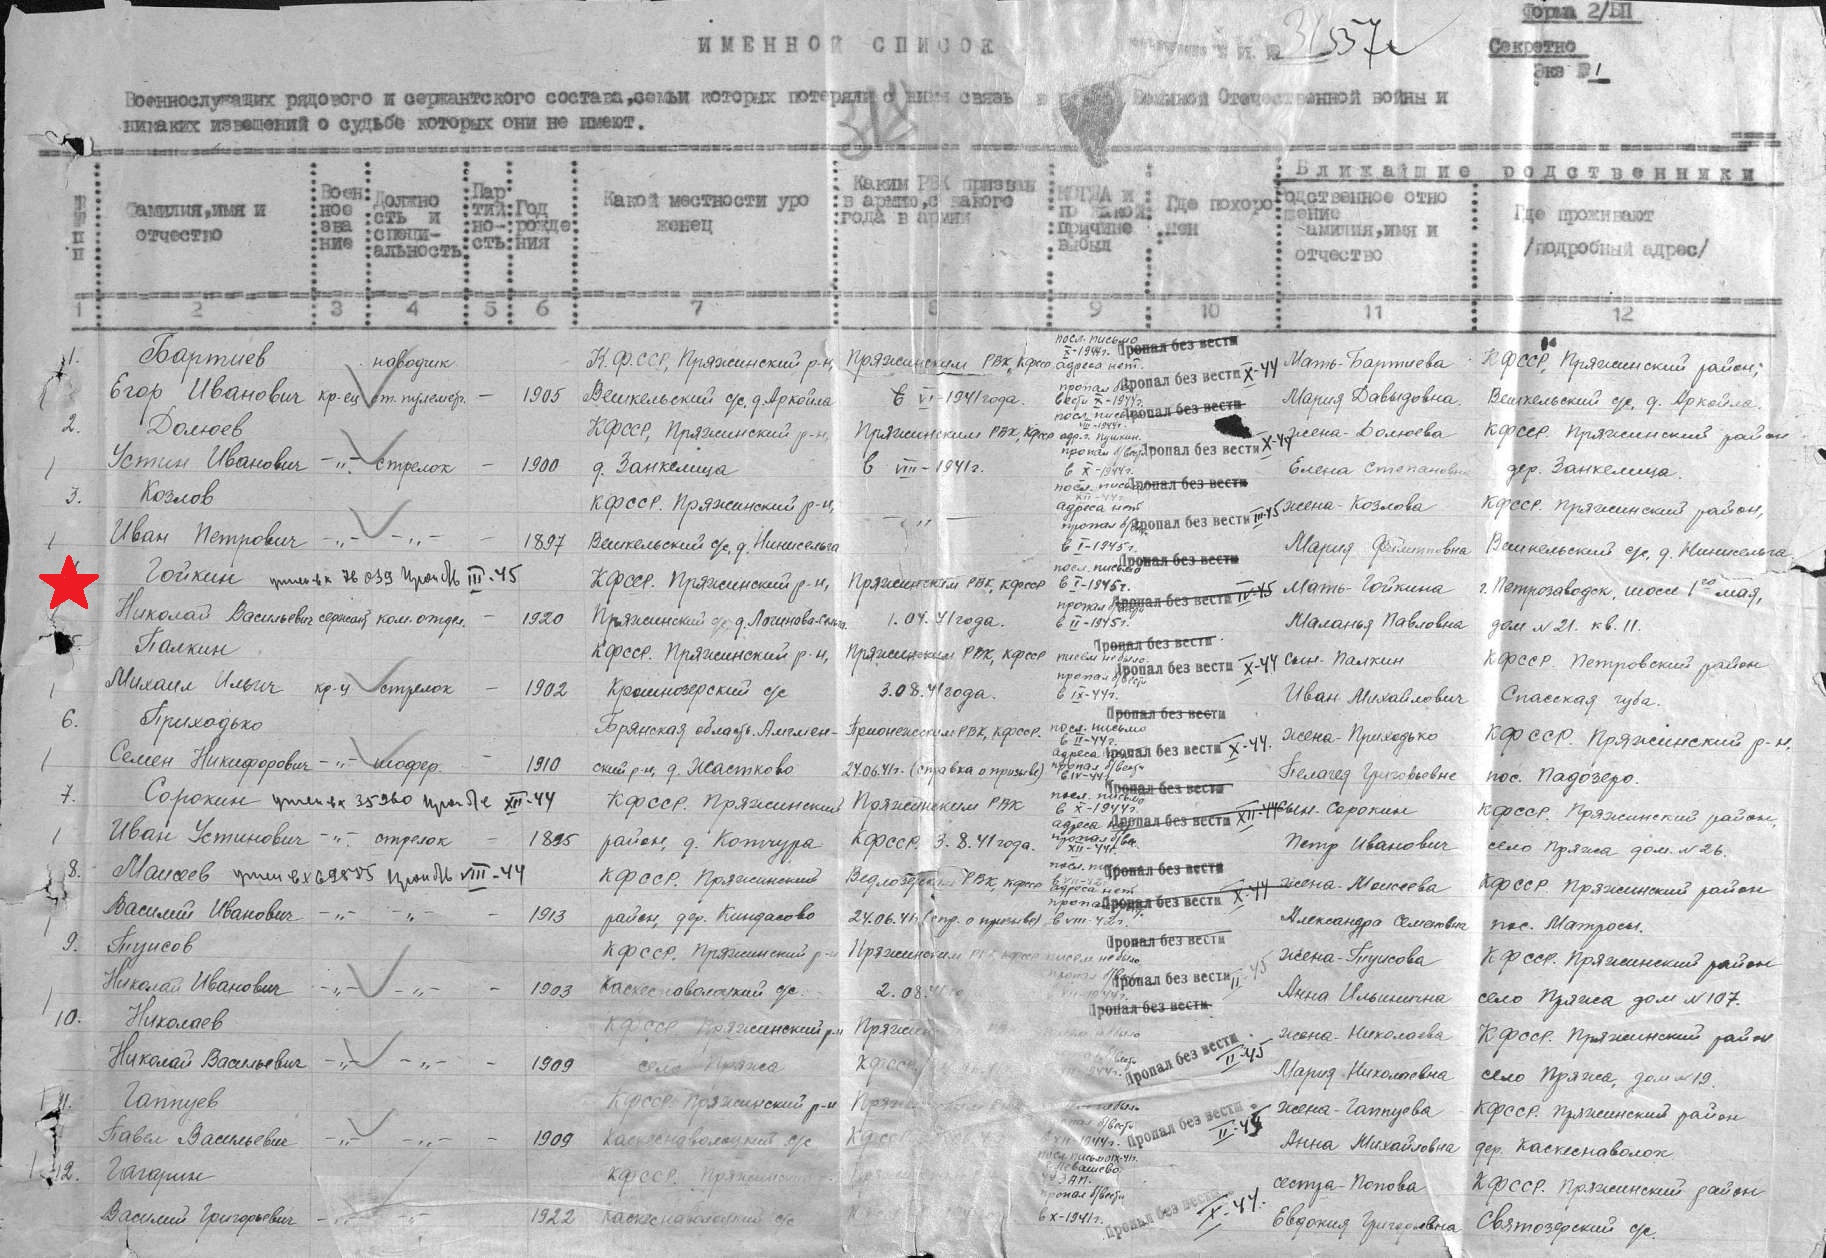 Форма 2/БП
ИМЕННОЙ СПИСОК
31557
Секретно
Экз №1
Военнослужащих рядового и сержантского состава, семьи которых потеряли с ними связь Великой Отечественной войны и
никаких извещений о судьбе которых они не имеют.
Фамилия, имя и отчество
Воен ное зва ние
Должно сть и специ- альность
Пар тий но- сть
Год рожде ния
Какой местности уро женец
Каким РВК призван в армию, с какого года в армии
Когда и по какой причине выбыл
Где похоро нен
Ближайшие родственники
одственное отно шение амилия, имя и отчество
Где проживают /подробный адрес/
1 2 3 4 5 6 7 8 9 10 11 12
1. Бартиев наводчик К.Ф.ССР, Пряжинский р-н, Пряжинским РВК, Кфсср посл. письмо X-1944г. адреса нет. Пропал без вести Мать-Бартиева КФССР, Пряжинский район,
Егор Иванович кр-ец ст. пулемер. – 1905 Вешкельский с/с, д. Аркойла в VI-1941 года. Пропал без вести X-44 Мария Давыдовна. Вешкельский с/с, д. Аркойла.
2. Долюев КФССР, Пряжинский р-н, Пряжинским РВК, Кфсср Пропал без вести жена-Долюева КФССР. Пряжинский район
1 Устин Иванович -"- стрелок – 1900 д. Занкелица в VIII-1941г. в X-1944г. Пропал без вести X-44 Елена Степановна дер. Занкелица.
3. Козлов КФССР. Пряжинский р-н, – " – адреса нет Пропал без вести жена-Козлова КФССР. Пряжинский район,
1 Иван Петрович -"- -"- – 1897 Вешкельский с/с, д. Нинисельга в I-1945г. Пропал без вести III-45 Мария Филипповна Вешкельский с/с, д. Нинисельга
Гойкин III-45 КФССР. Пряжинский р-н, Пряжинским РВК, КФССР посл. письмо в I-1945г. Пропал без вести Мать-Гойкина г. Петрозаводск, шоссе 1го мая,
Николай Васильевич сержант ком. отдел. – 1920 Пряжинский с/с д. Логинова-Сельга. 1.04.41 года. в II-1945г. Пропал без вести IV-45 Маланья Павловна дом №21. кв. 11.
Палкин КФССР. Пряжинский р-н, Пряжинским РВК, КФССР писем не было. Пропал без вести сын-Палкин КФССР. Петровский район
1 Михаил Ильич кр-ц стрелок – 1902 Крошнозерский с/с 3.08.41 года. в IX-44г. Пропал без вести X-44 Иван Михайлович Спасская губа.
6. Приходько Брянская область. Прионежским РВК, КФССР. посл. письмо в II-44г. Пропал без вести жена-Приходько КФССР. Пряжинский р-н,
1 Семен Никифорович -"- шофер. – 1910 ский р-н, д. Хастково 24.06.41г. (справка о призыве) Пропал без вести X-44. Пелагея Григорьевне пос. Падозеро.
7. Сорокин 35960 XII-44 КФССР. Пряжинский Пряжинским РВК посл. письмо в X-1944г. Пропал без вести сын-Сорокин КФССР. Пряжинский район,
1 Иван Устинович -"- стрелок – 1895 район, д. Коткура КФССР 3.8.41 года. XII-44г. Пропал без вести XII-44 Петр Иванович село Пряжа дом №26.
8. Моисеев VIII-44 КФССР. Пряжинский Ведлозерским РВК, КФССР адреса нет Пропал без вести жена-Моисеева КФССР. Пряжинский район
Василий Иванович -"- -"- – 1913 район, дер. Киндасово 24.06.41г. (спр. о призыве) в VIII-42г. Пропал без вести X-44 Александра Семеновна пос. Матросы.
9. Туисов КФССР. Пряжинский р-н Пряжинским РВК КФССР писем не было Пропал без вести жена-Туисова КФССР. Пряжинский район
Николай Иванович -"- -"- – 1903 Каскеснаволоцкий с/с. 2.08. Пропал без вести II-45 Анна Ильинична село Пряжа дом №107.
10. Николаев КФССР Пряжинский р-н Пропал без вести жена-Николаева КФССР. Пряжинский район
Николай Васильевич -"- -"- – 1909 село Пряжа КФССР Пропал без вести II-45 Мария Николаевна село Пряжа, дом №19.
11. Гаппуев КФССР. Пряжинский р-н жена-Гаппуева КФССР. Пряжинский район
Павел Васильевич -"- -"- – 1909 Каскеснаволоцкий с/с Пропал без вести II-45 Анна Михайловна дер. Каскеснаволок.
12. Гагарин КФССР. Пряжинский сестра-Попова КФССР. Пряжинский район
Василий Григорьевич -"- 1922 Каскеснаволоцкий с/с в X-1941г. Пропал без вести X-44. Евдокия Григорьевна Святозерский с/с.